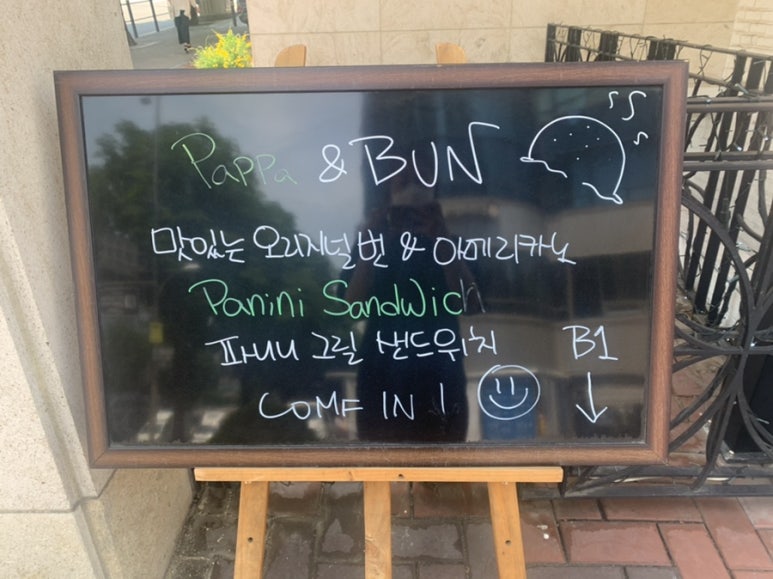 Pappa & BUN
맛있는 오리지널번 & 아메리카노
Panini Sandwich
파니니 그릴 샌드위치
B1
COME IN !